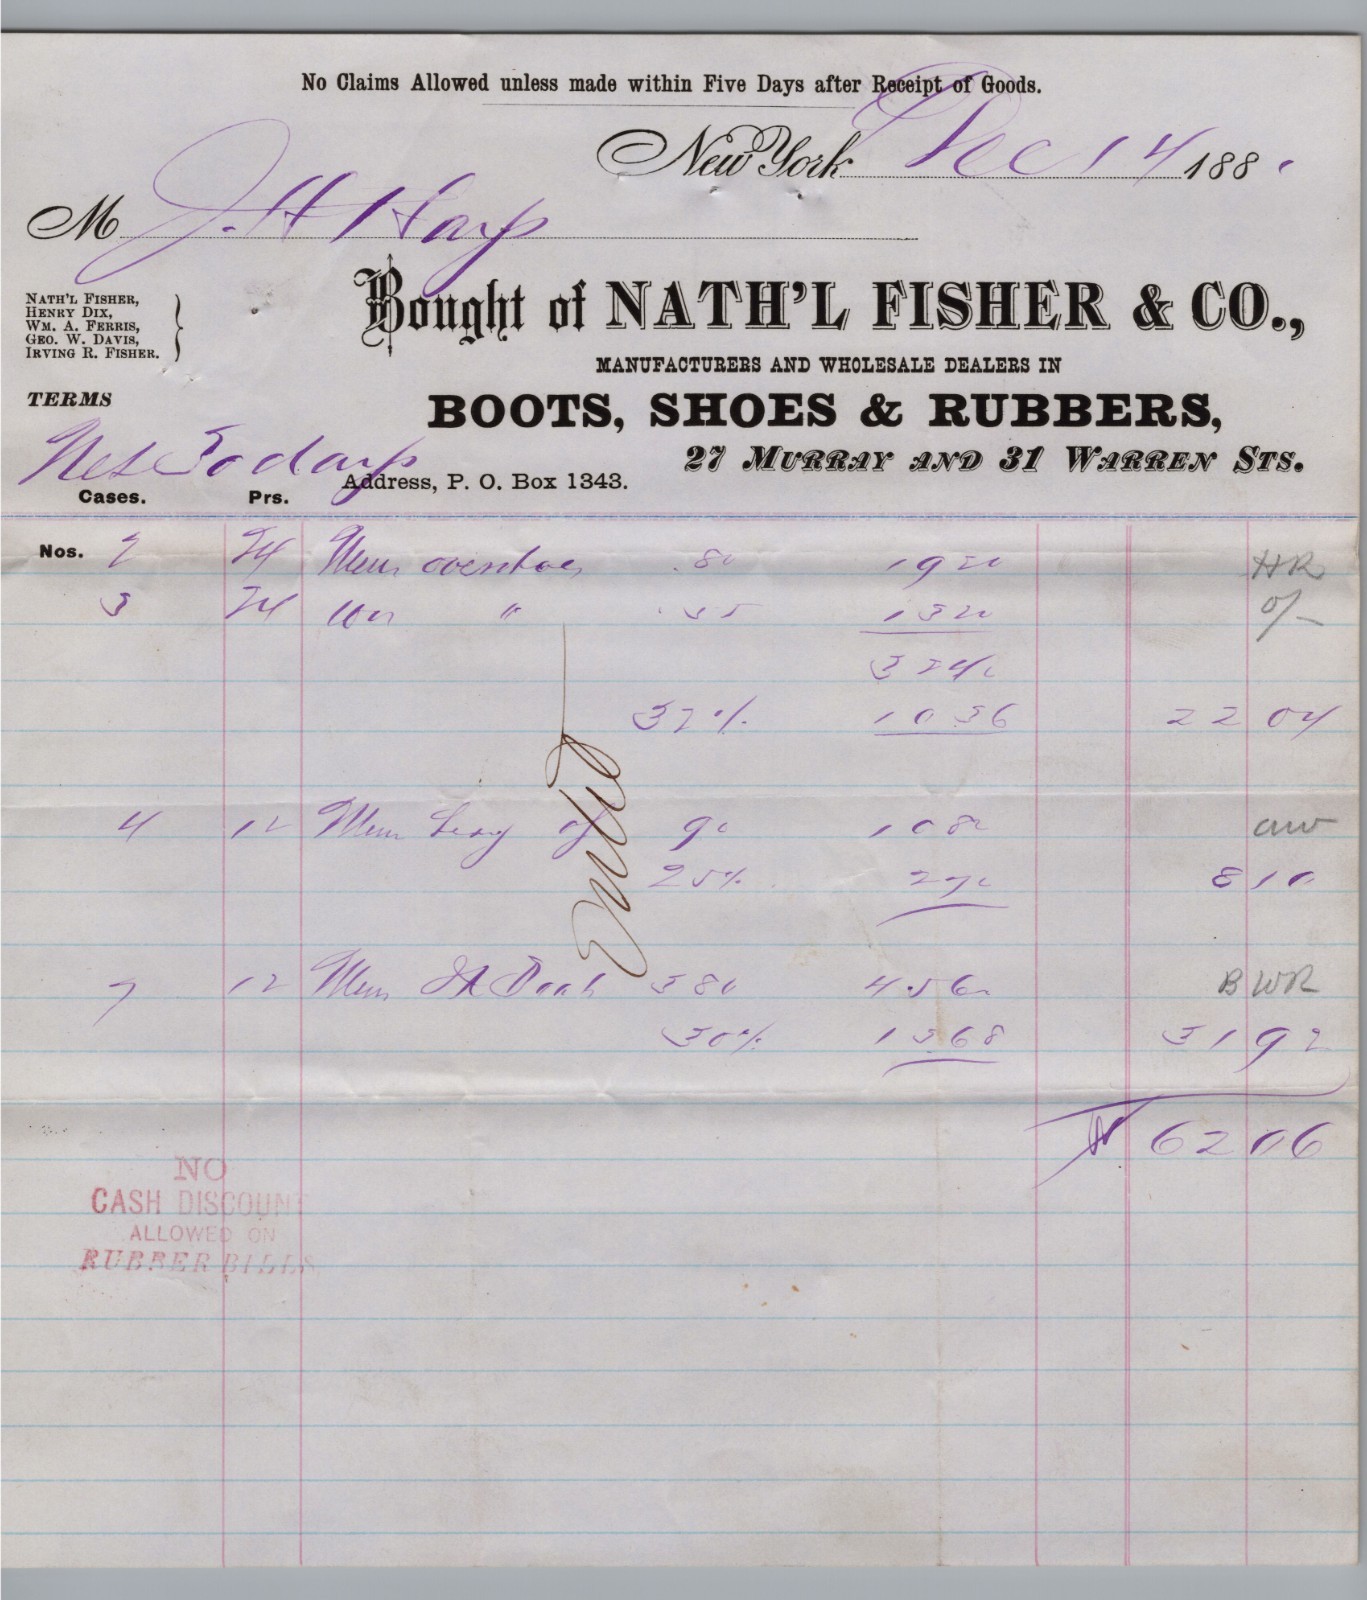 No Claims Allowed unless made within Five Days after Receipt of Goods.
New York Dec 14 188
M J. H Harp
NATH'L FISHER,
HENRY DIX,
WM. A. FERRIS,
GEO. W. DAVIS,
IRVING R. FISHER.
Bought of NATH'L FISHER & CO.,
MANUFACTURERS AND WHOLESALE DEALERS IN
BOOTS, SHOES & RUBBERS,
27 MURRAY AND 31 WARREN STS.
TERMS
Net 30 days
Address, P. O. Box 1343.
Cases. Prs.
Nos. 2 24 Mens overshoes .80 1920 HR
3 24 Wos " .55 1320
3240
32% 1036 2204
4 12 Mens 90 1080
25% 270 810
7 12 Mens 380 4560 BWR
30% 1368 3192
6206
NO
CASH DISCOUNT
ALLOWED ON
RUBBER BILLS